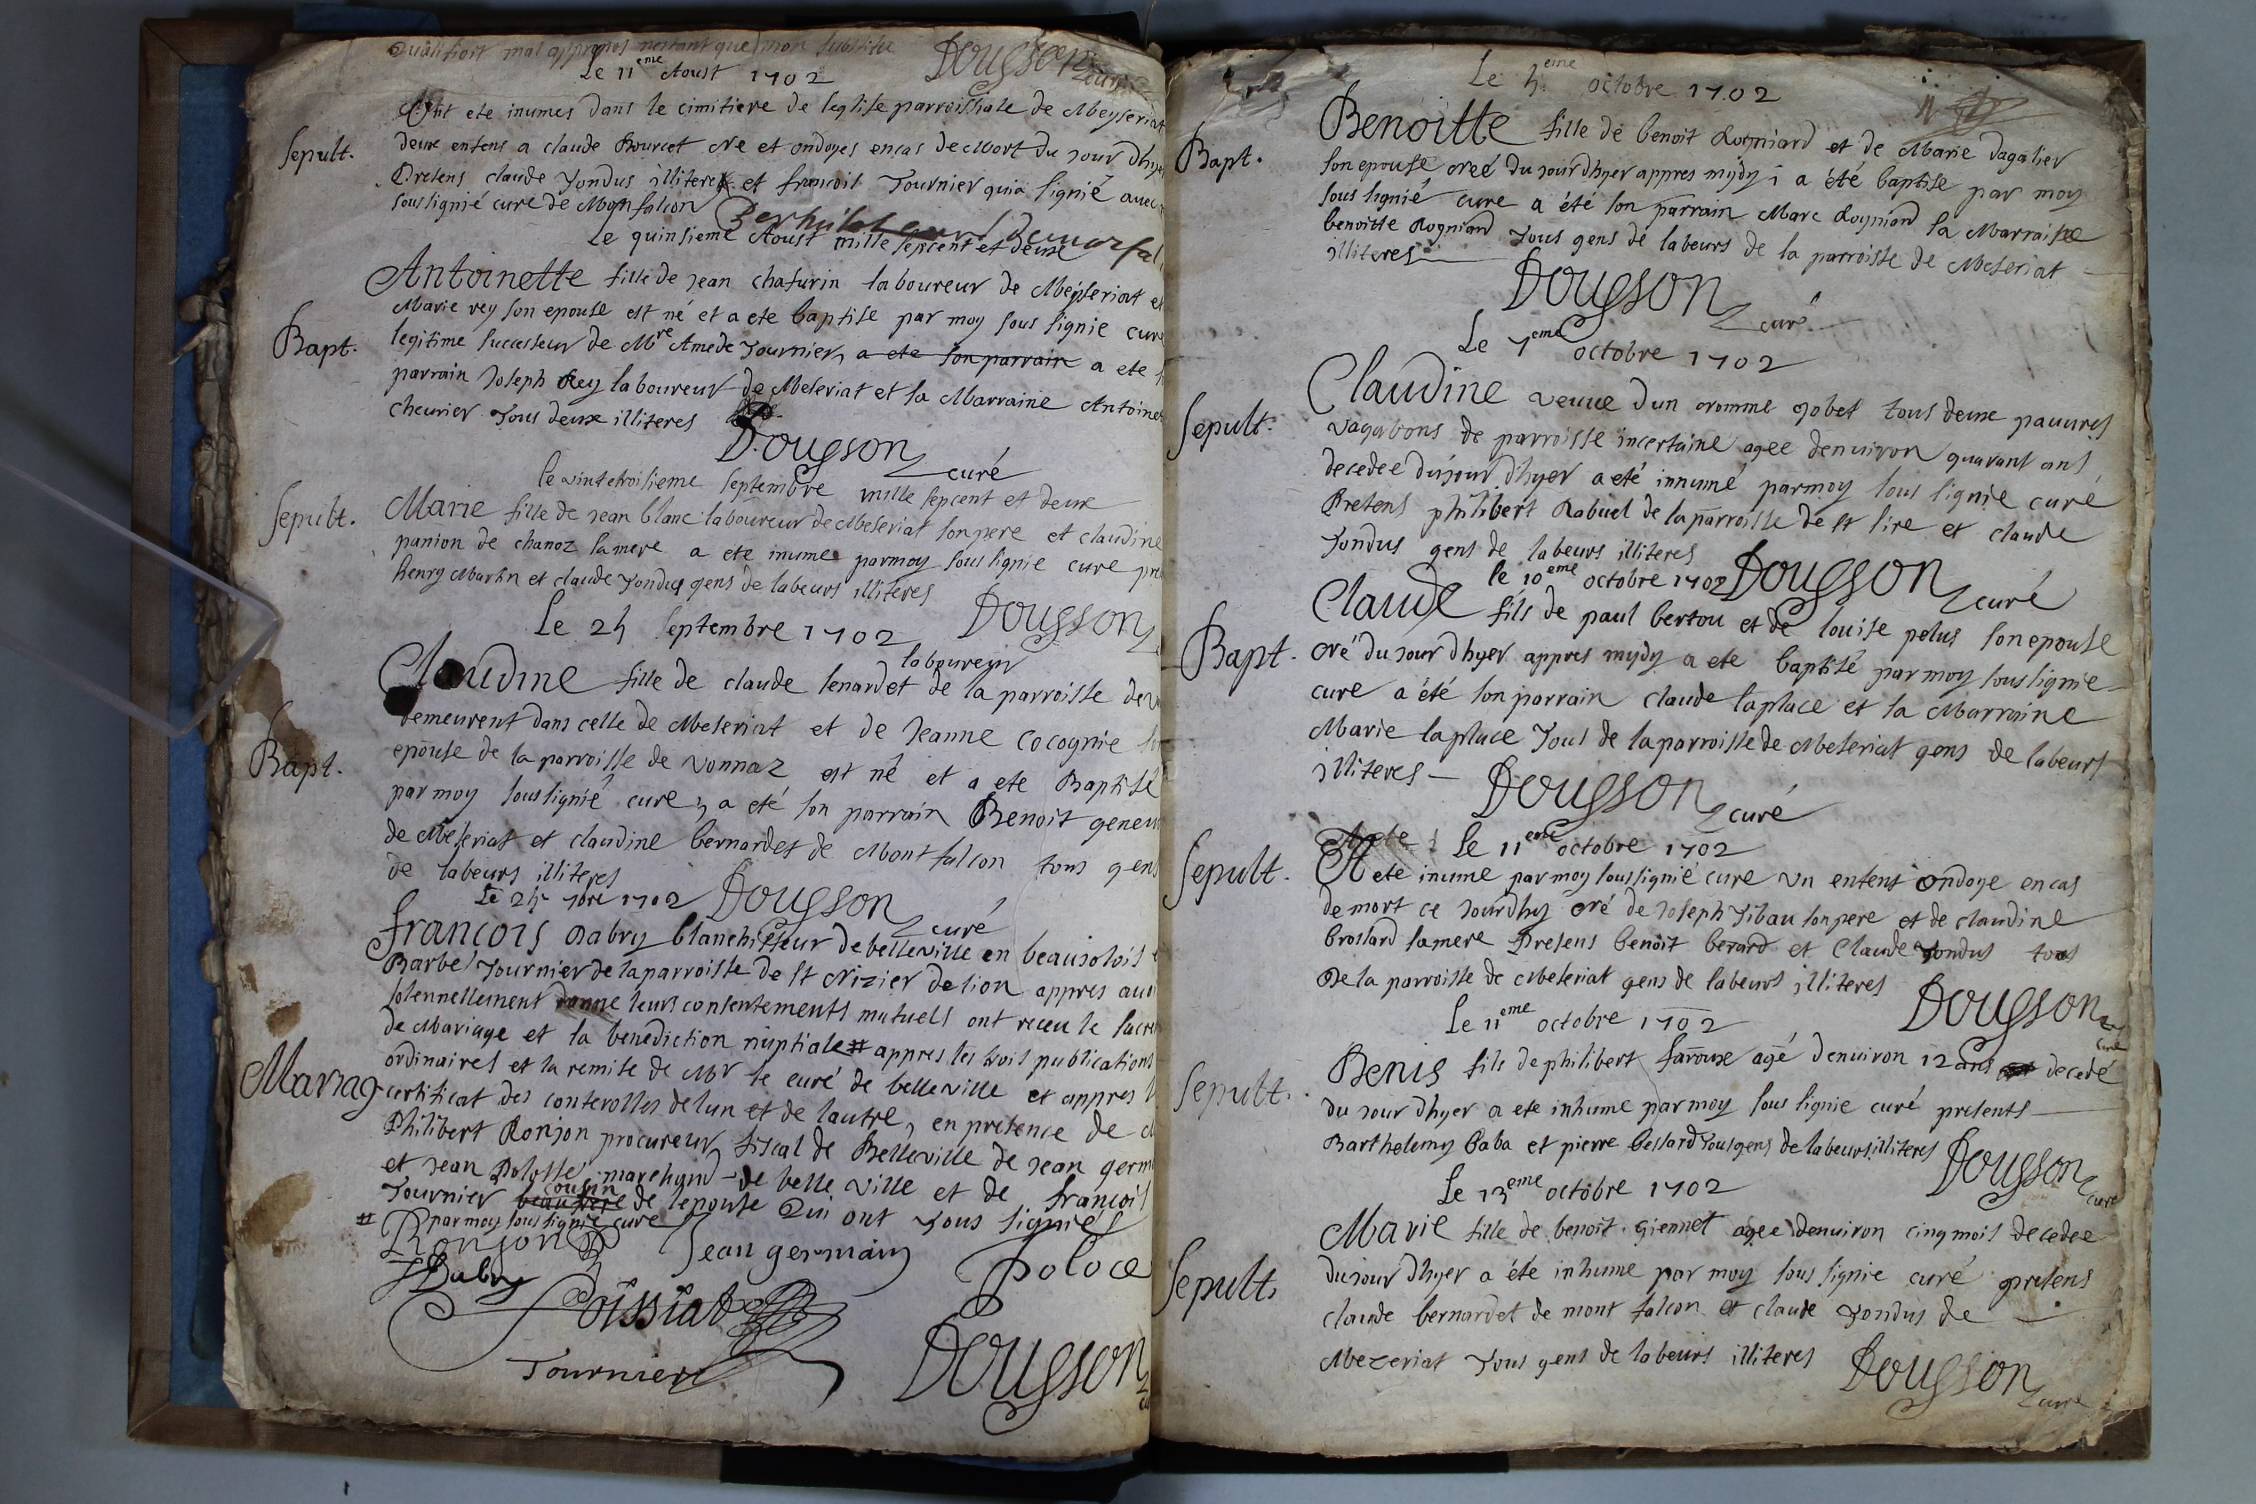 qualifioit mal appropos nestant que mon substitu Dougson curé
Le 11eme Aoust 1702
Ont ete inumes dans le cimitiere de leglise parroissiale de Meyseriat
Sepult.
deux enfens a claude Bourcet né et ondoyes encas de Mort du jour dhyer
Presens claude Tondus illiteres et francois Tournier qui a signié avec
soussignié cure de Monfalcon
Le quinsieme Aoust mille sepcent et deux
Antoinette fille de jean chafurin laboureur de Meyseriat et
Marie rey son epouse est né et a ete baptise par moy sous signie curé
Bapt.
legitime successeur de Mre Amede Tournier, a ete son parrain a ete
parrain Joseph Rey laboureur de Meseriat et la Marraine Antoinet
chevrier Tous deux illiteres
Dougson curé
le vinteroisieme septembre mille sepcent et deux
Sepult.
Marie fille de jean blanc laboureur de Meseriat son pere et claudine
panion de chanoz sa mere a ete inumee par moy sous signie cure pre
henry Martin et claude Tondus gens de labeurs illiteres
Dougson
Le 24 septembre 1702
laboureur
Claudine fille de claude lenardet de la parroisse de
demeurent dans celle de Meseriat et de Jeanne cocognie
Bapt.
epouse de la parroisse de vonnaz est né et a ete Baptisé
par moy soussignié cure, a eté son parrain Benoit
de Meseriat et claudine bernardet de Montfalcon tous gens
de labeurs illiteres
Le 24 7bre 1702 Dougson curé
francois Dabry blanchisseur de belleville en beausolois
Barbe Tournier de la parroisse de st Nizier de lion appres
solennellement donne leurs consentements mutuels ont receu le sacre
de Mariage et la benediction nuptiale # appres les trois publications
ordinaires et la remise de Mr le curé de belleville et appres
Mariag
certificat des conterolles de lun et de lautre, en presence de
Philibert Ronjon procureur fiscal de Belleville de jean germ
et jean Polosse marchand de belle ville et de francois
cousin
Tournier beaufrere de lepouse Qui ont Tous signiés
# par moy sous signié cure
Ronjon Jean germain Poloce
Dabry
Poissiat
Tournier Dougson
Le 4eme octobre 1702
Bapt.
Benoitte fille de benoit Rogniard et de Marie dagalier
son epouse creé du jour dhyer appres mydy i a été baptise par moy
sous signié cure a été son parrain Marc Rogniard sa Marraine
benoitte Rogniard Tous gens de labeurs de la parroisse de Meseriat
illiteres
Dougson curé
Le 7eme octobre 1702
Claudine veuve dun nomme gobet tous deux pauvres
Sepult.
vagabons de parroisse incertaine agee denviron quarant ans
decedee du jour dhyer a eté innumé par moy sous signie curé
Presens philibert Rabuel de la parroisse de st sire et claude
Tondus gens de labeurs illiteres
le 10eme octobre 1702 Dougson curé
Claude fils de paul bertou et de louise pelus son epouse
Bapt.
né du jour dhyer appres mydy a ete baptisé par moy sous signie
cure a été son parrain claude laplace et la Marraine
Marie laplace Tous de la parroisse de Meseriat gens de labeurs
illiteres
Dougson curé
Le 11eme octobre 1702
Sepult.
A ete inume par moy soussignié cure un enfent ondoye en cas
de mort ce jourdhuy né de Joseph Tibau son pere et de claudine
brossard sa mere Presens benoit berard et Claude Tondus tous
De la parroisse de Meseriat gens de labeurs illiteres
Dougson curé
Le 11eme octobre 1702
Sepult.
Denis fils de philibert faroux agé denviron 12 ans decedé
du jour dhyer a ete inhume par moy sous signie curé presents
Barthelemy baba et pierre bessard Tous gens de labeurs illiteres
Dougson curé
Le 13eme octobre 1702
Marie fille de benoit giennet agee denviron cinq mois decedee
Sepult.
du jour dhyer a été inhume par moy sous signie curé presens
claude bernardet de mont falcon et claude Tondus de
Mezeriat Tous gens de labeurs illiteres
Dougson curé